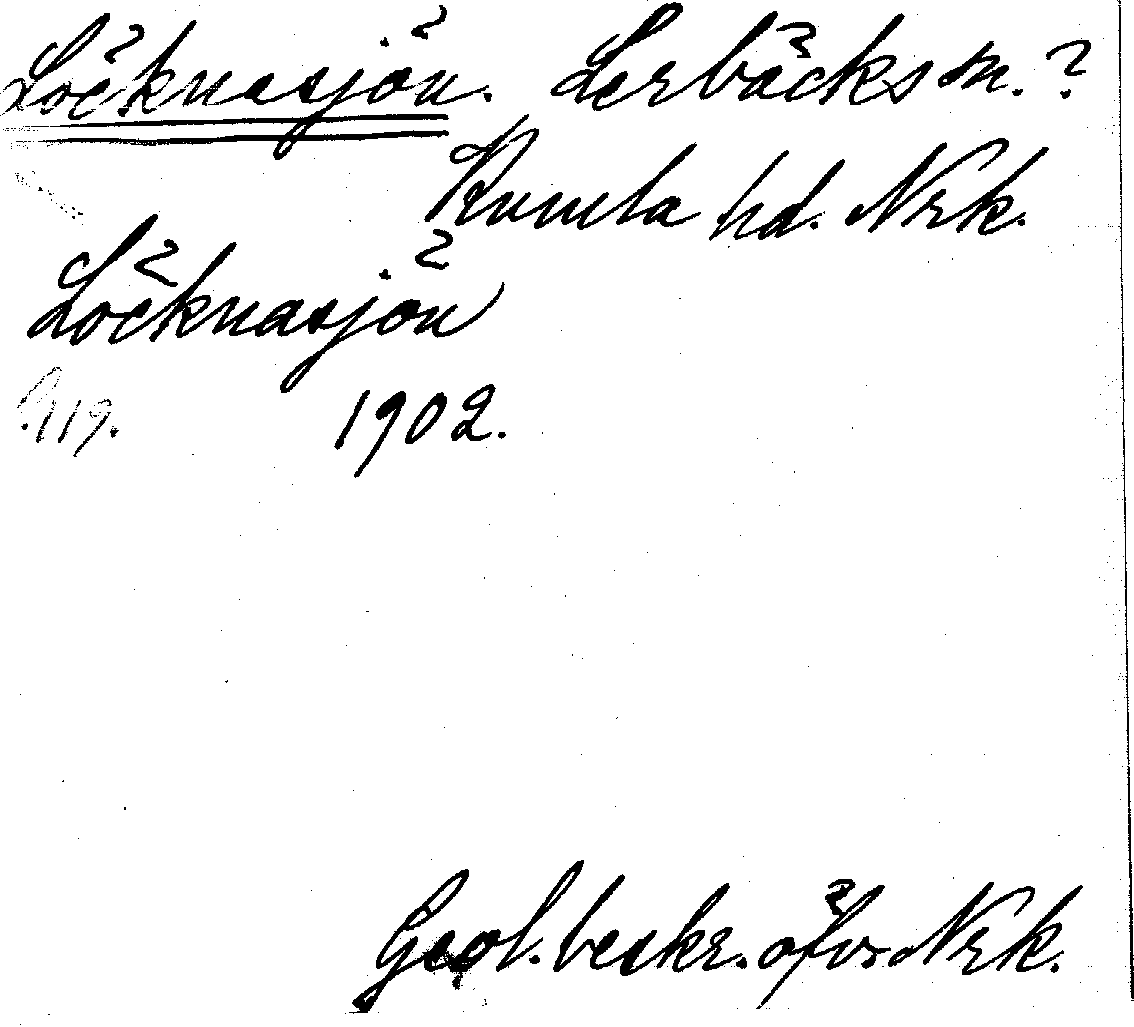 Löcknasjön. Lerbäcks sn. ?
Kumla hd. Nrk.
Löcknasjön
S. 119. 1902.
Geol. beskr. öfvr Nrk.